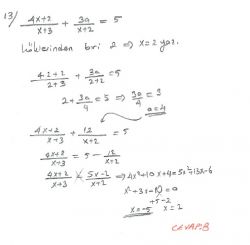 13) (4x+2)/(x+3) + 3a/(x+2) = 5
köklerinden biri 2 ⇒ x=2 yaz.
(4.2+2)/(2+3) + 3a/(2+2) = 5
2 + 3a/4 = 5 ⇒ 3a/4 = 3
a=4
(4x+2)/(x+3) + 12/(x+2) = 5
(4x+2)/(x+3) = 5 - 12/(x+2)
(4x+2)/(x+3) = (5x-2)/(x+2) ⇒ 4x²+10x+4=5x²+13x-6
x²+3x-10=0
+5 -2
x=-5 x=2
CEVAP:B